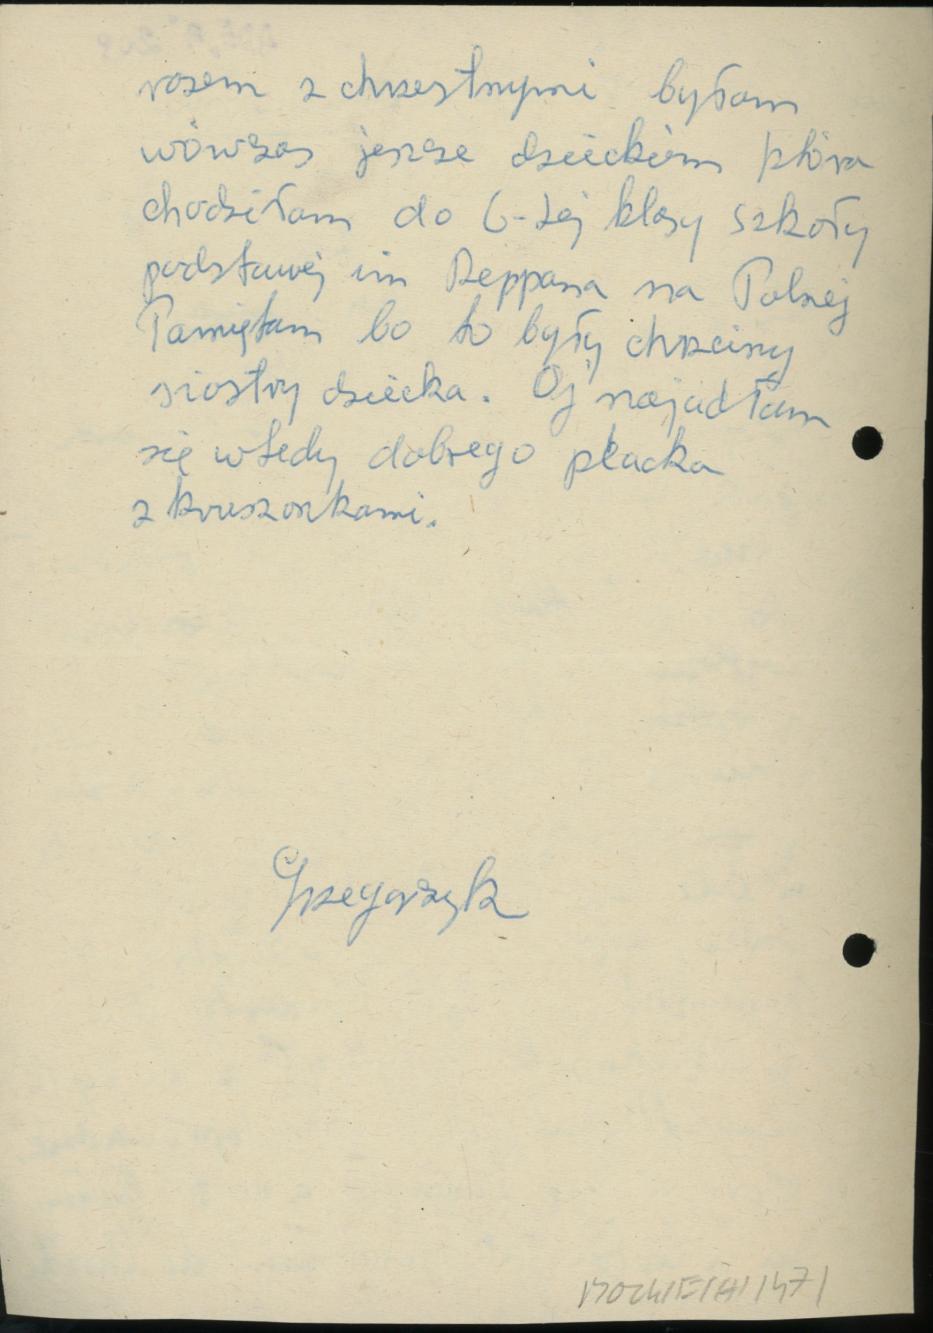 razem z chrzestnymi byłam
wówczas jeszcze dzieckiem która
chodziłam do 6-tej klasy szkoły
podstawej im Reppana na Polnej
Pamiętam bo to były chrzciny
siostry dziecka. Oj najadłam
się wtedy dobrego placka
z kruszonkami.
Grzegorzyk